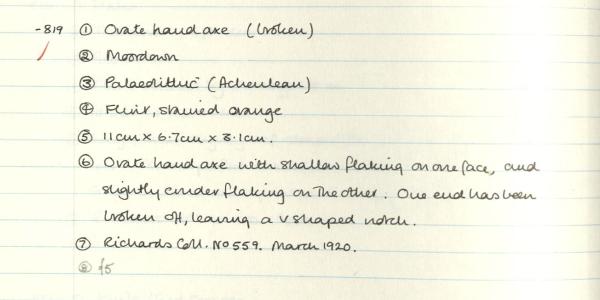 -819 ① Ovate hand axe (broken)
② Moordown
③ Palaeolithic (Acheulean)
④ Flint, stained orange
⑤ 11cm x 6.7cm x 3.1cm.
⑥ Ovate hand axe with shallow flaking on one face, and
slightly cruder flaking on the other. One end has been
broken off, leaving a v shaped notch.
⑦ Richards Coll. No 559. March 1920.
⑧ £5